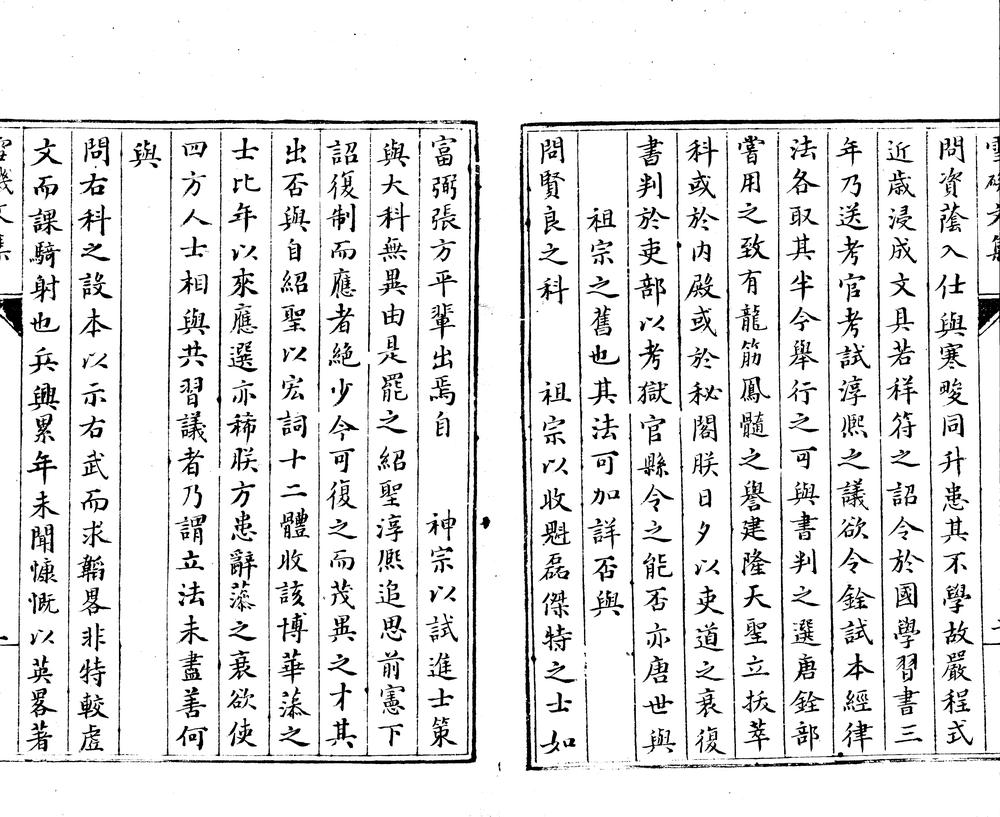 問資蔭入仕與寒畯同升患其不學故嚴程式
近歲浸成文具若祥符之詔令於國學習書三
年乃送考官考試淳熈之議欲令銓試本經律
法各取其半今舉行之可與書判之選唐銓部
嘗用之致有龍筋鳳髓之譽建隆天聖立拔萃
科或於内殿或於秘閣朕日夕以吏道之衰復
書判於吏部以考獄官縣令之能否亦唐世與
祖宗之舊也其法可加詳否與
問賢良之科　祖宗以收魁磊傑特之士如
富弼張方平輩出焉自　神宗以試進士策
與大科無異由是罷之紹聖淳熈追思前憲下
詔復制而應者絶少今可復之而茂異之才其
出否與自紹聖以宏詞十二體收該博華藻之
士比年以來應選亦稀朕方患辭藻之衰欲使
四方人士相與共習議者乃謂立法未盡善何
與
問右科之設本以示右武而求韜畧非特較虚
文而課騎射也兵興累年未聞慷慨以英畧著